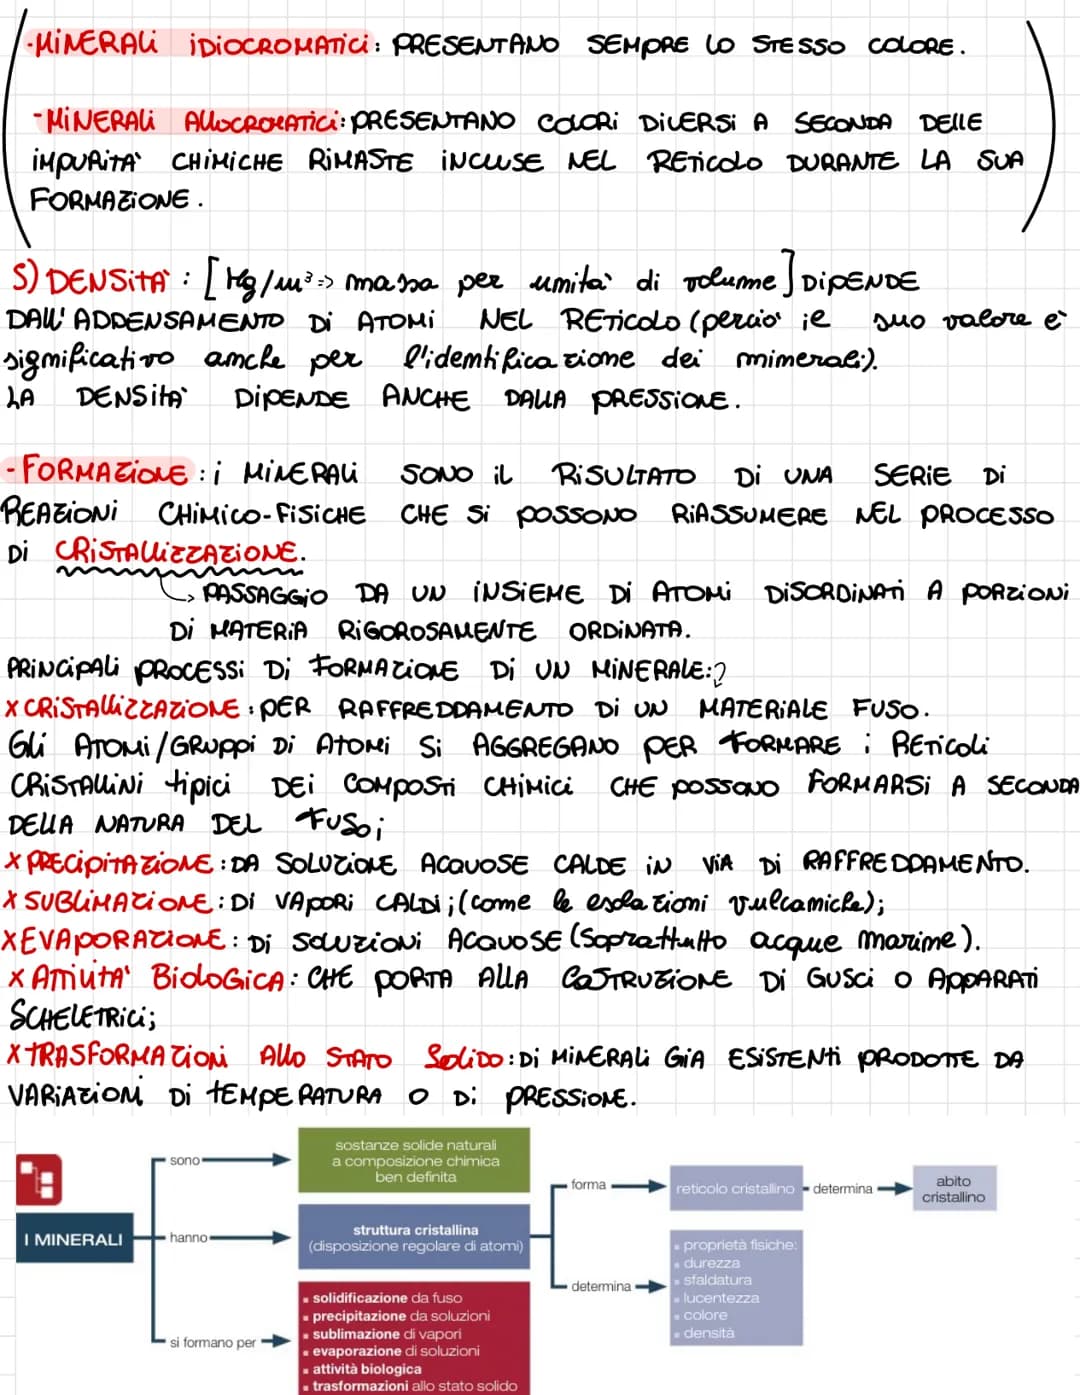 -MINERALI IDIOCROMATICI: PRESENTANO SEMPRE LO STESSO COLORE.
-MINERALI ALLOCROMATICI: PRESENTANO COLORI DIVERSI A SECONDA DELLE
IMPURITA' CHIMICHE RIMASTE INCLUSE NEL RETICOLO DURANTE LA SUA
FORMAZIONE.
5) DENSITA': [Kg/m³=> massa per unita' di volume] DIPENDE
DALL'ADDENSAMENTO DI ATOMI NEL RETICOLO (percio' il suo valore e'
significativo anche per l'identificazione dei minerali).
LA DENSITA' DIPENDE ANCHE DALLA PRESSIONE.
-FORMAZIONE: i MINERALI SONO IL RISULTATO DI UNA SERIE DI
REAZIONI CHIMICO-FISICHE CHE SI POSSONO RIASSUMERE NEL PROCESSO
DI CRISTALLIZZAZIONE.
↳ PASSAGGIO DA UN INSIEME DI ATOMI DISORDINATI A PORZIONI
DI MATERIA RIGOROSAMENTE ORDINATA.
PRINCIPALI PROCESSI DI FORMAZIONE DI UN MINERALE:
X CRISTALLIZZAZIONE: PER RAFFREDDAMENTO DI UN MATERIALE FUSO.
Gli ATOMI/GRUPPI DI ATOMI SI AGGREGANO PER FORMARE i RETICOLI
CRISTALLINI tipici DEI COMPOSTI CHIMICI CHE POSSONO FORMARSI A SECONDA
DELLA NATURA DEL FUSO;
X PRECIPITAZIONE: DA SOLUZIONE ACQUOSE CALDE IN VIA DI RAFFREDDAMENTO.
X SUBLIMAZIONE: DI VAPORI CALDI; (come le esalazioni vulcaniche);
X EVAPORAZIONE: DI SOLUZIONI ACQUOSE (soprattutto acque marine).
X ATTIVITA' BIOLOGICA: CHE PORTA ALLA COSTRUZIONE DI GUSCI O APPARATI
SCHELETRICI;
X TRASFORMAZIONI ALLO STATO SOLIDO: DI MINERALI GIA ESISTENTI PRODOTTE DA
VARIAZIONI DI TEMPERATURA O DI PRESSIONE.
I MINERALI
sono
sostanze solide naturali
a composizione chimica
ben definita
hanno
struttura cristallina
(disposizione regolare di atomi)
forma
reticolo cristallino
determina
abito
cristallino
determina
▪ proprietà fisiche:
▪ durezza
▪ sfaldatura
▪ lucentezza
▪ colore
▪ densità
si formano per
▪ solidificazione da fuso
▪ precipitazione da soluzioni
▪ sublimazione di vapori
▪ evaporazione di soluzioni
▪ attività biologica
▪ trasformazioni allo stato solido